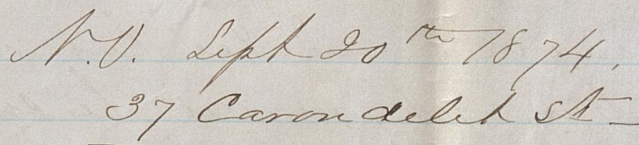 N.O. Sept 20th 1874,
37 Carondelet St-